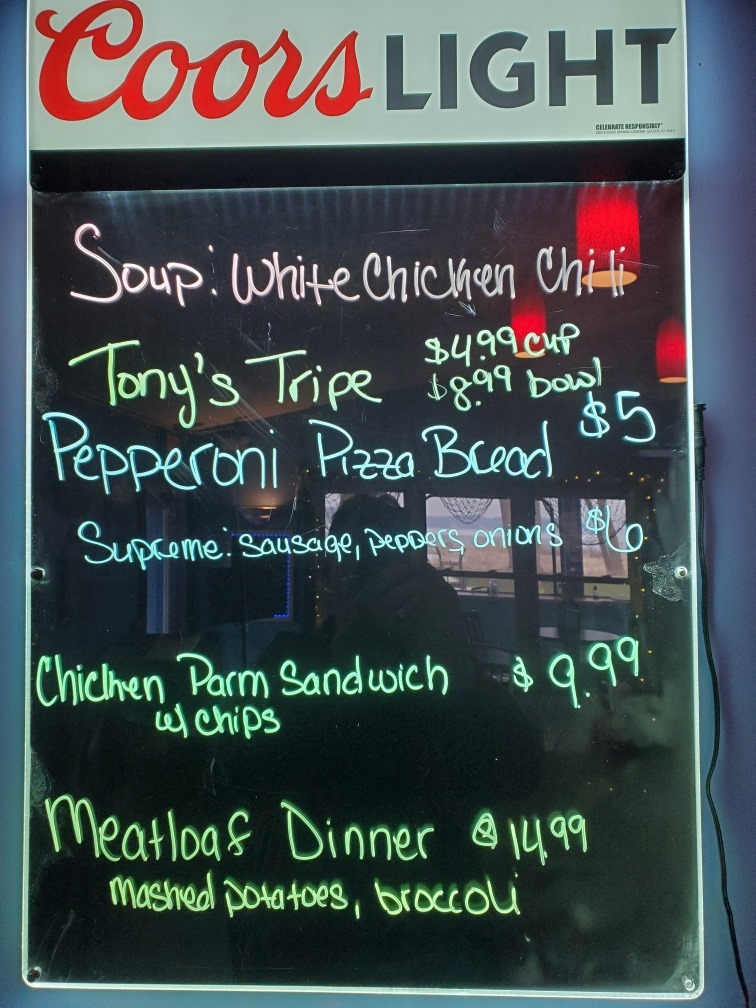 Coors LIGHT
CELEBRATE RESPONSIBLY®
Soup: White Chicken Chili
Tony's Tripe $4.99 cup
$8.99 bowl
Pepperoni Pizza Bread $5
Supreme: sausage, peppers, onions $6
Chicken Parm Sandwich $9.99
w/ chips
Meatloaf Dinner $14.99
mashed potatoes, broccoli